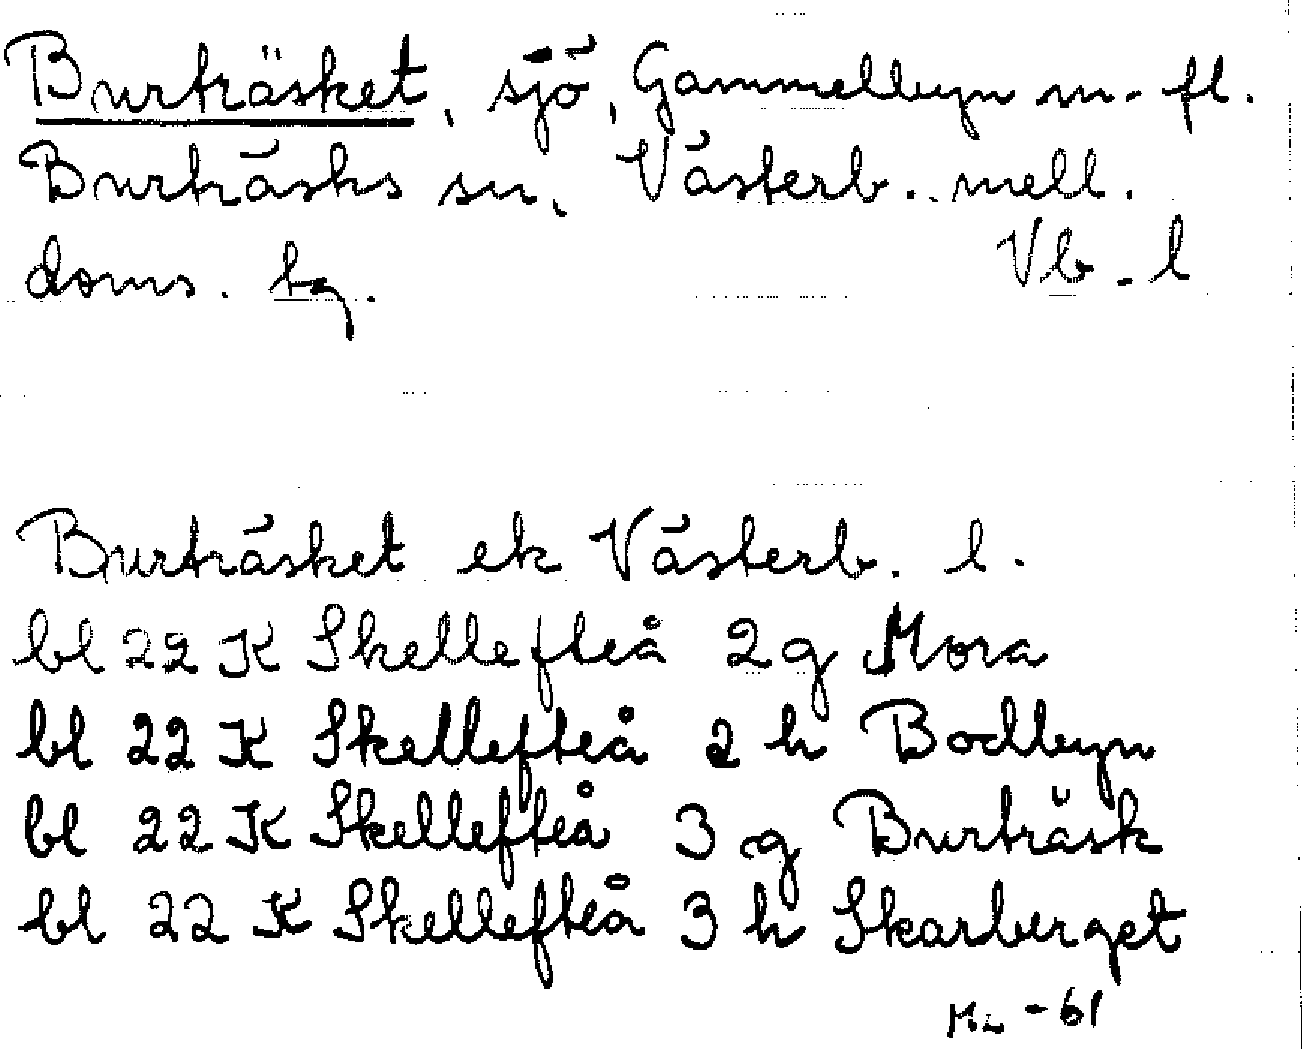 Burträsket, sjö, Gammelbyn m. fl.
Burträsks sn, Västerb. mell.
doms. bg. Vb. l
Burträsket ek Västerb. l.
bl 22 K Skellefteå 2 g Mora
bl 22 K Skellefteå 2 h Bodbyn
bl 22 K Skellefteå 3 g Burträsk
bl 22 K Skellefteå 3 h Skarberget
-61